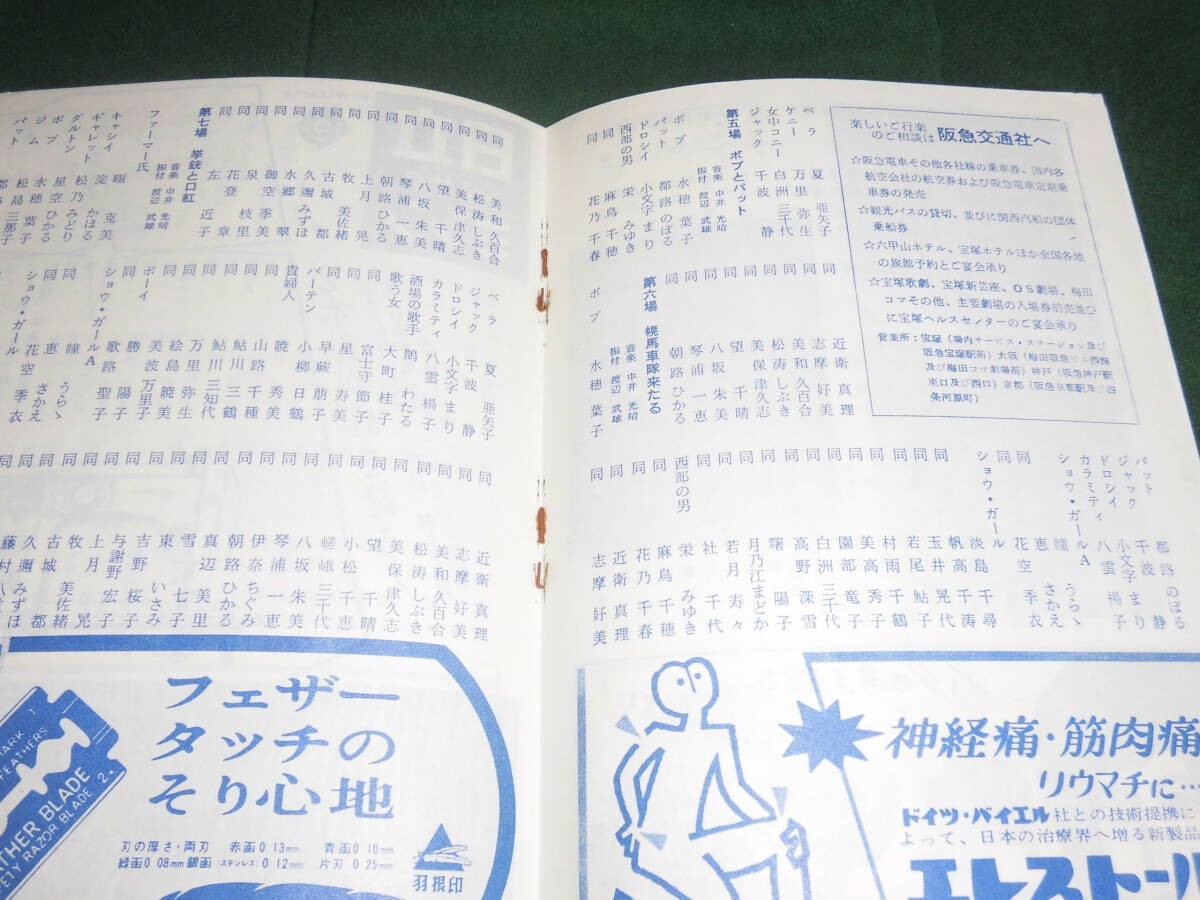 楽しいご行楽
のご相談は 阪急交通社へ
☆阪急電車その他各社線の乗車券、国内各
航空会社の航空券および阪急電車定期乗
車券の発売
☆観光バスの貸切、並びに関西汽船の団体
乗船券
☆六甲山ホテル、宝塚ホテルほか全国各地
の旅館予約とご宴会承り
☆宝塚歌劇、宝塚新芸座、OS劇場、梅田
コマその他、主要劇場の入場券前売並び
に宝塚ヘルスセンターのご宴会承り
営業所：宝塚（場内サービス・ステーション及び
阪急宝塚駅前）大阪（梅田阪急ビル西館
及び梅田コマ劇場前）神戸（阪急神戸駅
東口及び西口）京都（阪急京都駅及び四
条河原町）
ベラ 夏 亜矢子
ケニー 万里 弥生
女中コニー 白洲 三千代
ジャック 千波 静
第五場 ボブとパット
音楽 中井 光晴
振付 渡辺 武雄
ボブ 水穂 葉子
パット 都路 のぼる
ドロシイ 小文字 まり
西部の男 栄 みゆき
同 麻鳥 千穂
同 花乃 千春
同 近衛 真理
同 志摩 好美
同 美和 久百合
同 松涛 しぶき
同 美保 津久志
同 望 千晴
同 八坂 朱美
同 琴浦 一恵
同 朝路 ひかる
第六場 幌馬車隊来たる
音楽 中井 光晴
振付 渡辺 武雄
ボブ 水穂 葉子
パット 都路 のぼる
ジャック 千波 静
ドロシイ 小文字 まり
カラミティ 八雲 楊子
ショウ・ガールA 瞳 うらゝ
同 恵 さかえ
同 花空 季衣
ショウ・ガール 淡島 千尋
同 帆高 千涛
同 玉井 晃代
同 若尾 鮎子
同 村雨 千鶴
同 美高 秀子
同 園部 竜子
同 白洲 三千代
同 高野 深雪
同 曙 陽子
同 月乃江 まどか
同 若月 寿々
同 社 千代
西部の男 栄 みゆき
同 麻鳥 千穂
同 花乃 千春
同 近衛 真理
同 志摩 好美
同 美和 久百合
同 松涛 しぶき
同 美保 津久志
同 望 千晴
同 八坂 朱美
同 琴浦 一恵
同 朝路 ひかる
同 上月 晃
同 牧 美佐緒
同 古城 都
同 久邇 みずほ
同 水郷 翠
同 御空 季美
同 泉 枝里
同 花登 章
同 左 近子
第七場 拳銃と口紅
音楽 中井 光晴
振付 渡辺 武雄
ファーマー氏
キャシイ 畷 克美
ギャレット 淀 かほる
ダルトン 松乃 みどり
ボブ 星空 ひかる
ジム 水穂 葉子
パット 松島 三那子
ベラ 夏 亜矢子
ジャック 千波 静
ドロシイ 小文字 まり
カラミティ 八雲 楊子
酒場の歌手 鵠 わたる
歌う女 大町 桂子
同 富士守 節子
同 星 寿美
バーテン 早蕨 萠子
貴婦人 小柳 日鶴
同 暁 秀美
同 山路 千種
同 鮎川 三鶴
同 鮎川 三知代
同 万里 弥生
同 絵島 暁美
ボーイ 美波 万里子
同 勝 陽子
ショウ・ガールA 歌路 聖子
同 瞳 うらゝ
同 恵 さかえ
ショウ・ガール 花空 季衣
同 近衛 真理
同 志摩 好美
同 美和 久百合
同 松涛 しぶき
同 美保 津久志
同 望 千晴
同 小松 千恵
同 嵯峨 三千代
同 八坂 朱美
同 琴浦 一恵
同 伊奈 ちぐみ
同 朝路 ひかる
同 真辺 美里
同 雪 七子
同 東 いさみ
同 吉野 桜子
同 与謝野 宏子
同 上月 晃
同 牧 美佐緒
同 古城 都
同 久邇 みずほ
藤村
フェザー
タッチの
そり心地
刃の厚さ・両刃 赤函0.13mm 青函0.10mm
緑函0.08mm銀函(ステンレス)0.12mm 片刃0.25mm
羽根印
MARK
FEATHERS
THER BLADE
ETY RAZOR BLADE 2.
神経痛・筋肉痛
リウマチに…
ドイツ・バイエル社との技術提携に
よって、日本の治療界へ増る新製品
エレストール